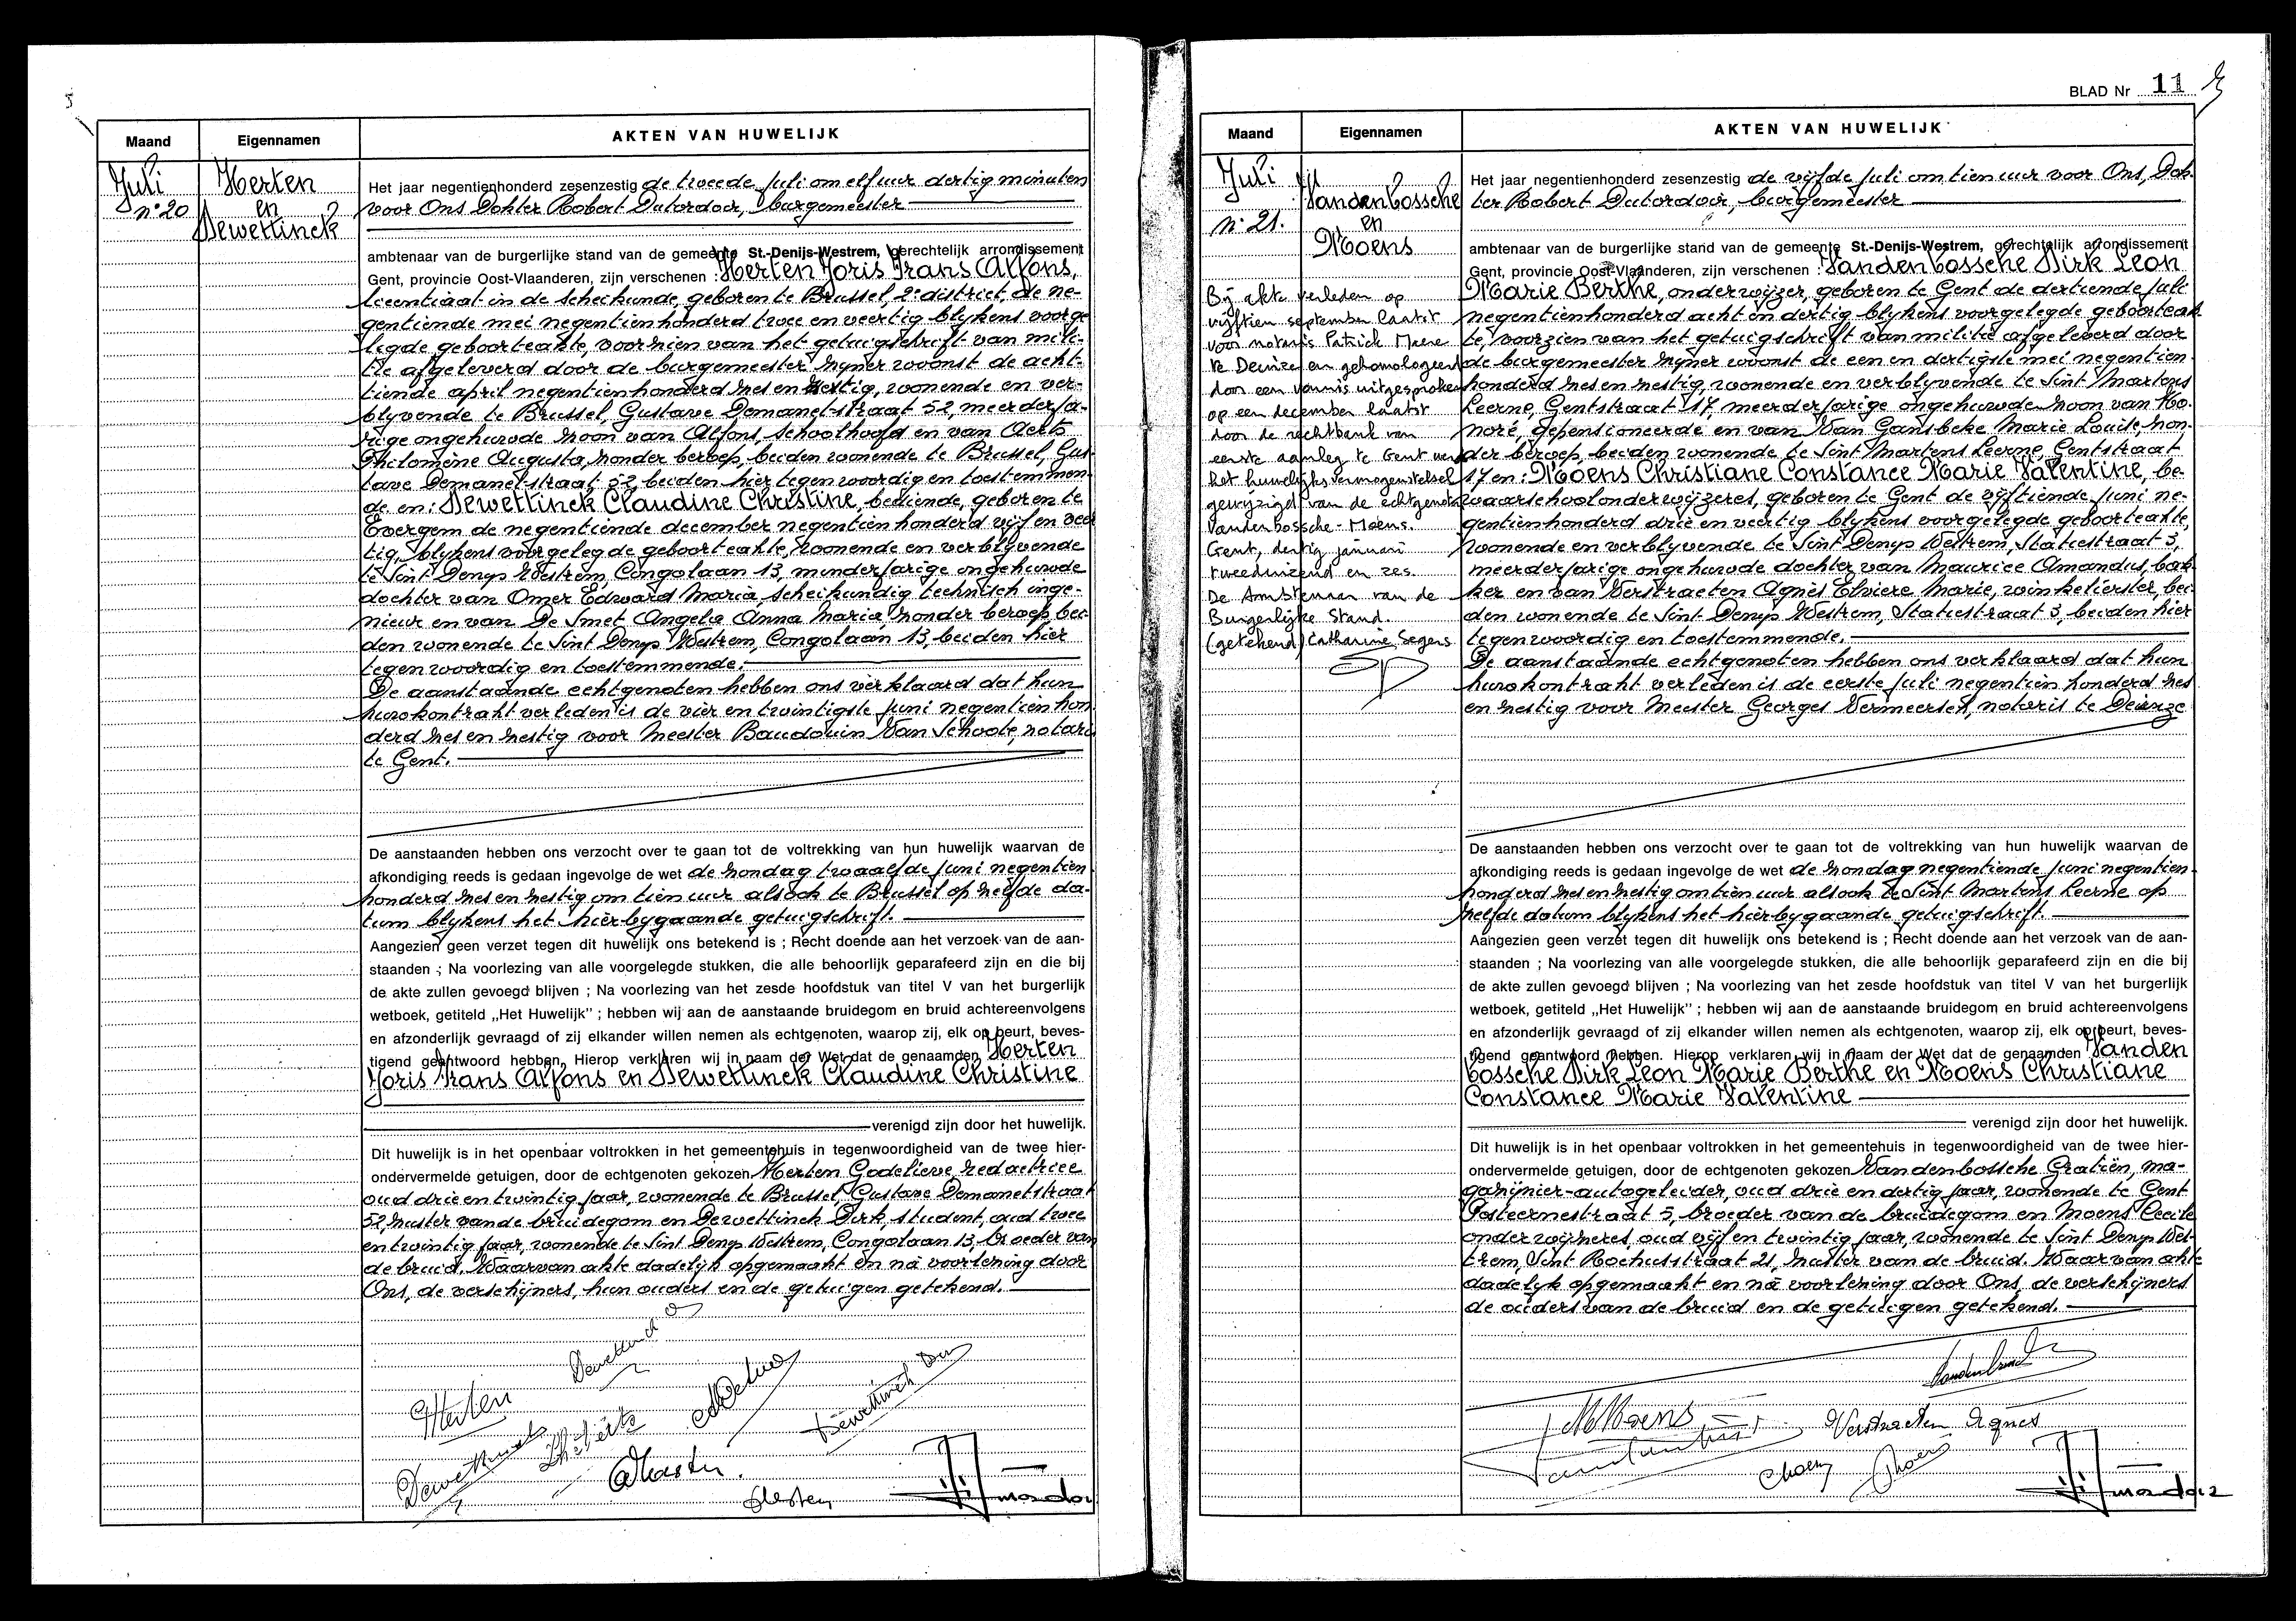 Maand
Eigennamen
AKTEN VAN HUWELIJK
Juli
n° 20
Herten
en
Dewettinck
Het jaar negentienhonderd zesenzestig de tweede Juli om elf uur dertig minuten
voor Ons Dokter Robert Dutordoir, burgemeester
ambtenaar van de burgerlijke stand van de gemeente St.-Denijs-Westrem, gerechtelijk arrondissement
Gent, provincie Oost-Vlaanderen, zijn verschenen : Herten Joris Frans Alfons,
licentiaat in de scheikunde, geboren te Brussel, 2e district, de ne-
gentiende mei negentienhonderd twee en veertig blijkens voorge
legde geboorteakte, voorzien van het getuigschrift van mili-
tie afgeleverd door de burgemeester zijner woonst de acht-
tiende april negentienhonderd zes en zestig, wonende en ver-
blijvende te Brussel, Gustave Demanetstraat 52, meerderja-
rige ongehuwde zoon van Alfons, schoolhoofd en van Aerts
Philomène Augusta, zonder beroep, beiden wonende te Brussel, Gus
tave Demanetstraat 52, beiden hier tegenwoordig en toestemmen-
de en : Dewettinck Claudine Christine, bediende, geboren te
Evergem de negentiende december negentienhonderd vijf en veer
tig, blijkens voorgelegde geboorteakte, wonende en verblijvende
te Sint Denijs Westrem, Congolaan 13, minderjarige ongehuwde
dochter van Omer Edward Maria, scheikundig technisch inge-
nieur en van De Smet Angela Anna Maria zonder beroep, bei-
den wonende te Sint Denijs Westrem, Congolaan 13, beiden hier
tegenwoordig en toestemmende.
De aanstaande echtgenoten hebben ons verklaard dat hun
huwkontrakt verleden is de vier en twintigste juni negentienhon
derd zes en zestig voor Meester Baudouin Van Schoote, notaris
te Gent.
De aanstaanden hebben ons verzocht over te gaan tot de voltrekking van hun huwelijk waarvan de
afkondiging reeds is gedaan ingevolge de wet de zondag twaalfde juni negentien
honderd zes en zestig om tien uur alsook te Brussel op zelfde da-
tum blijkens het hierbijgaande getuigschrift.
Aangezien geen verzet tegen dit huwelijk ons betekend is ; Recht doende aan het verzoek van de aan-
staanden ; Na voorlezing van alle voorgelegde stukken, die alle behoorlijk geparafeerd zijn en die bij
de akte zullen gevoegd blijven ; Na voorlezing van het zesde hoofdstuk van titel V van het burgerlijk
wetboek, getiteld „Het Huwelijk" ; hebben wij aan de aanstaande bruidegom en bruid achtereenvolgens
en afzonderlijk gevraagd of zij elkander willen nemen als echtgenoten, waarop zij, elk op beurt, beves-
tigend geantwoord hebben. Hierop verklaren wij in naam der Wet dat de genaamden Herten
Joris Frans Alfons en Dewettinck Claudine Christine
verenigd zijn door het huwelijk.
Dit huwelijk is in het openbaar voltrokken in het gemeentehuis in tegenwoordigheid van de twee hier-
ondervermelde getuigen, door de echtgenoten gekozen Herten Godelieve, redactrice
oud drie en twintig jaar, wonende te Brussel, Gustave Demanetstraat
52, zuster van de bruidegom en Dewettinck Dirk, student, oud twee
en twintig jaar, wonende te Sint Denijs Westrem, Congolaan 13, broeder van
de bruid. Waarvan akte dadelijk opgemaakt en nà voorlezing door
Ons, de verschijners, hun ouders en de getuigen getekend.
Herten
BLAD Nr 11
Maand
Eigennamen
AKTEN VAN HUWELIJK
Juli
n° 21.
Vandenbossche
en
Moens
Bij akte verleden op
vijftien september laatst
voor notaris Patrick Maere
te Deinze en gehomologeerd
door een vonnis uitgesproken
op een december laatst
door de rechtbank van
eerste aanleg te Gent werd
het huwelijksvermogenstelsel
gewijzigd van de echtgenoten
Vandenbossche - Moens.
Gent, dertig januari
tweeduizend en zes.
De Ambtenaar van de
Burgerlijke Stand.
(getekend) Catharine Segers
Het jaar negentienhonderd zesenzestig de vijfde Juli om tien uur voor Ons, Dok-
ter Robert Dutordoir, burgemeester
ambtenaar van de burgerlijke stand van de gemeente St.-Denijs-Westrem, gerechtelijk arrondissement
Gent, provincie Oost-Vlaanderen, zijn verschenen : Vandenbossche Dirk Leon
Marie Berthe, onderwijzer, geboren te Gent de dertiende juli
negentienhonderd acht en dertig blijkens voorgelegde geboorteak-
te, voorzien van het getuigschrift van militie afgeleverd door
de burgemeester zijner woonst de een en dertigste mei negentien
honderd zes en zestig, wonende en verblijvende te Sint Martens
Leerne, Gentstraat 17, meerderjarige ongehuwde zoon van Ho-
noré, gepensioneerde en van Van Gansbeke Marie Louise, zon-
der beroep, beiden wonende te Sint Martens Leerne, Gentstraat
17 en : Moens Christiane Constance Marie Valentine, be-
waarschoolonderwijzeres, geboren te Gent de vijftiende juni ne-
gentienhonderd drie en veertig blijkens voorgelegde geboorteakte,
wonende en verblijvende te Sint Denijs Westrem, Statiestraat 3,
meerderjarige ongehuwde dochter van Maurice Amandus, bak
ker en van Verstraeten Agnès Elviere Marie, winkelierster, bei-
den wonende te Sint Denijs Westrem, Statiestraat 3, beiden hier
tegenwoordig en toestemmende.
De aanstaande echtgenoten hebben ons verklaard dat hun
huwkontrakt verleden is de eerste juli negentien honderd zes
en zestig voor Meester Georges Vermeersch, notaris te Deinze
De aanstaanden hebben ons verzocht over te gaan tot de voltrekking van hun huwelijk waarvan de
afkondiging reeds is gedaan ingevolge de wet de zondag negentiende juni negentien
honderd zes en zestig om tien uur alsook te Sint Martens Leerne op
zelfde datum blijkens het hierbijgaande getuigschrift.
Aangezien geen verzet tegen dit huwelijk ons betekend is ; Recht doende aan het verzoek van de aan-
staanden ; Na voorlezing van alle voorgelegde stukken, die alle behoorlijk geparafeerd zijn en die bij
de akte zullen gevoegd blijven ; Na voorlezing van het zesde hoofdstuk van titel V van het burgerlijk
wetboek, getiteld „Het Huwelijk" ; hebben wij aan de aanstaande bruidegom en bruid achtereenvolgens
en afzonderlijk gevraagd of zij elkander willen nemen als echtgenoten, waarop zij, elk op beurt, beves-
tigend geantwoord hebben. Hierop verklaren wij in naam der Wet dat de genaamden Vanden
bossche Dirk Leon Marie Berthe en Moens Christiane
Constance Marie Valentine
verenigd zijn door het huwelijk.
Dit huwelijk is in het openbaar voltrokken in het gemeentehuis in tegenwoordigheid van de twee hier-
ondervermelde getuigen, door de echtgenoten gekozen Vandenbossche Gratiën, ma-
gazijnier-autogeleider, oud drie en dertig jaar, wonende te Gent
Posteernestraat 5, broeder van de bruidegom en Moens Cecile
onderwijzeres, oud vijf en twintig jaar, wonende te Sint Denijs Wes-
trem, Sint Rochusstraat 21, zuster van de bruid. Waarvan akte
dadelijk opgemaakt en nà voorlezing door Ons, de verschijners
de ouders van de bruid en de getuigen getekend.
Moens
Verstraeten Agnes